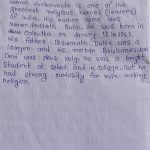 Swami vivekananda is one of the
greatest religious heroes (leaders)
of India. His earlier name was
Narendranath Dutta. He was born in
Calcutta on January 12 1863.
His father Biswanath Dutta was a
lawyer and his mother Bhubaneswari
Devi was pious lady. he was a bright
student at school and in college. But he
had strong curiosity for man-making
religion.